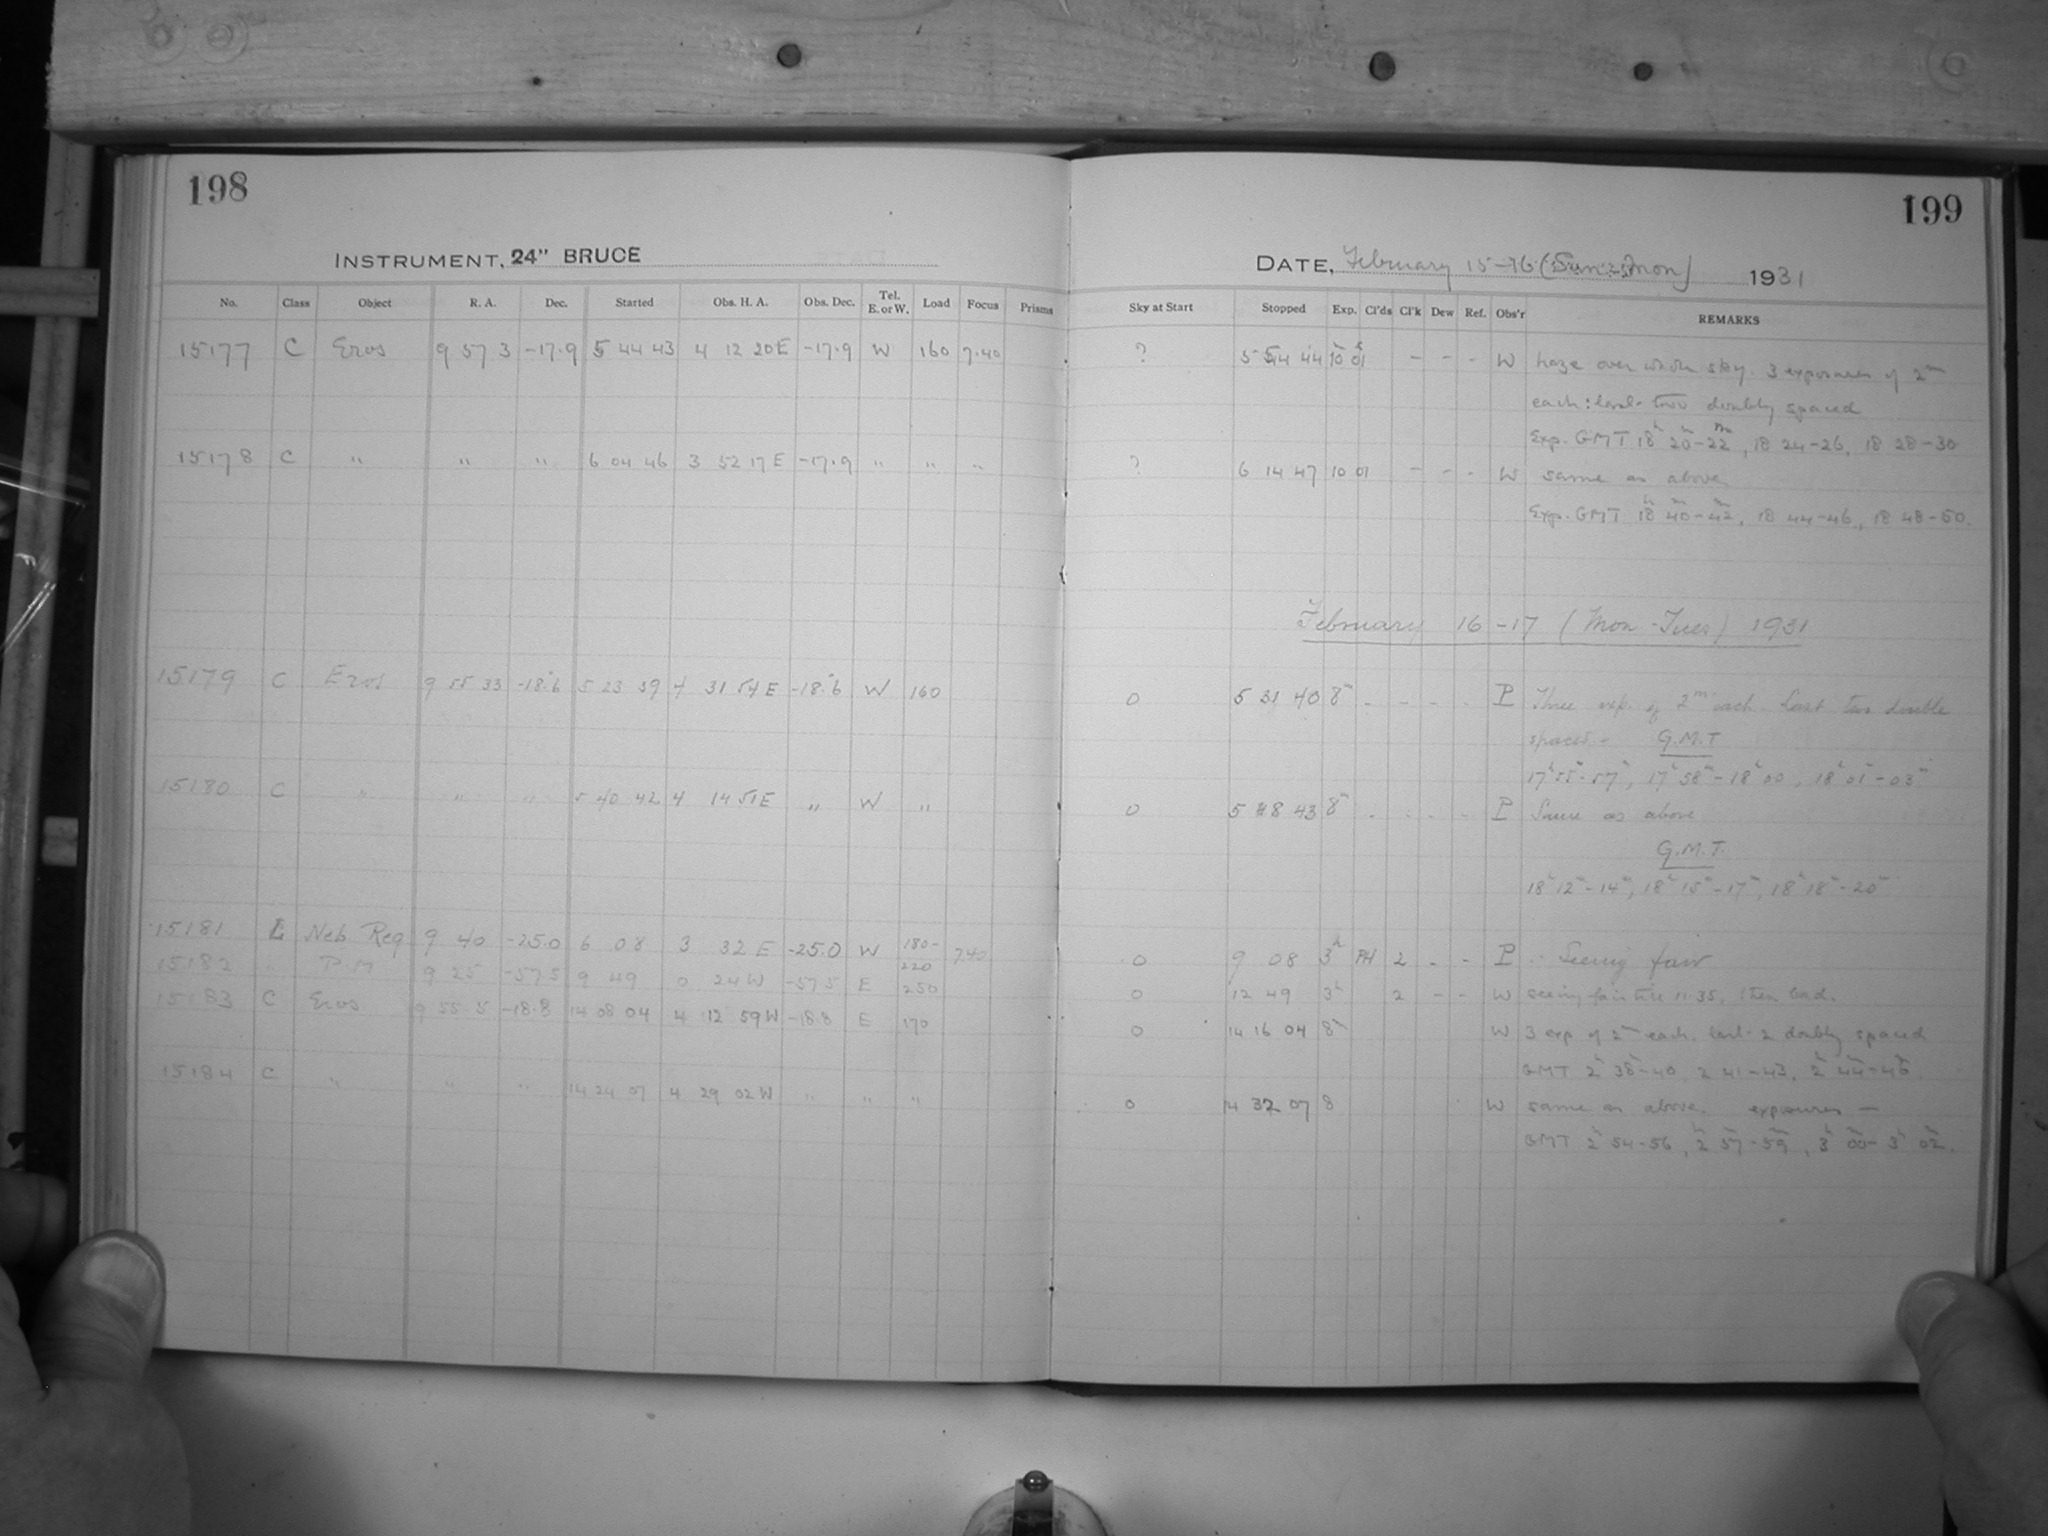 198
199
INSTRUMENT, 24" BRUCE
DATE, February 15-16 (Sun-Mon) 1931
No. Class Object R. A. Dec. Started Obs. H. A. Obs. Dec. Tel. E. or W. Load Focus Prisms Sky at Start Stopped Exp. Cl'ds Cl'k Dew Ref. Obs'r REMARKS
15177 C Eros 9 57 3 -17.9 5 44 43 4 12 20 E -17.9 W 160 7.40 ? 5 54 44 10 01 - - - W haze over whole sky. 3 exposures of 2m
each: last two doubly spaced
Exp. GMT 18h 20-22m, 18 24-26, 18 28-30
15178 C " " " 6 04 46 3 52 17 E -17.9 " " " ? 6 14 47 10 01 - - - W same as above
Exp. GMT 18h 40m-42m, 18 44-46, 18 48-50.
February 16-17 (Mon-Tues) 1931
15179 C Eros 9 55 33 -18.6 5 23 39 4 31 54 E -18.6 W 160 0 5 31 40 8m - - - - P Three exp. of 2m each. Last two double
spaced - G.M.T
17h 55m-57m, 17h 58m-18h 00, 18h 01-03m
15180 C " " " 5 40 42 4 14 51 E " W " 0 5 48 43 8m - - - - P Same as above
G.M.T.
18h 12m-14m, 18h 15m-17m, 18h 18m-20m
15181 L Neb Reg 9 40 -25.0 6 08 3 32 E -25.0 W 180-220 740 0 9 08 3h PH 2 - - P Seeing fair
15182 P.M 9 25 -57.5 9 49 0 24 W -57.5 E 250 0 12 49 3h 2 - - W seeing fair till 11.35, then bad.
15183 C Eros 9 55.5 -18.8 14 08 04 4 12 59 W -18.8 E 170 0 14 16 04 8m W 3 exp of 2m each. last 2 doubly spaced
GMT 2h 38m-40, 2 41-43, 2h 44m-46m.
15184 C " " " 14 24 07 4 29 02 W " " " 0 14 32 07 8 W same as above. exposures -
GMT 2h 54-56, 2h 57m-59m, 3h 00m-3h 02m.